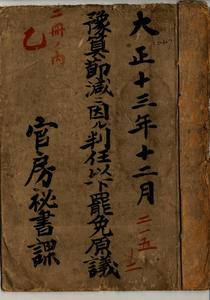 大正十三年十二月
二一五―二
豫算節減ニ因ル判任以下罷免原議
二冊ノ内
乙
官房祕書課